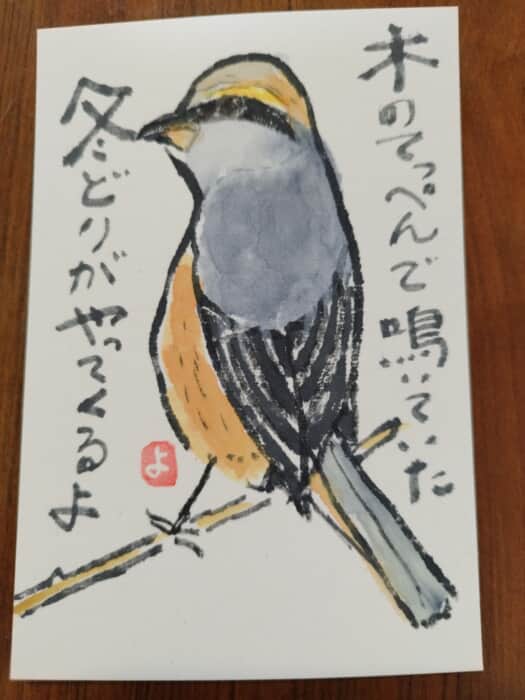 木のてっぺんで鳴いていた
冬どりがやってくるよ
よ